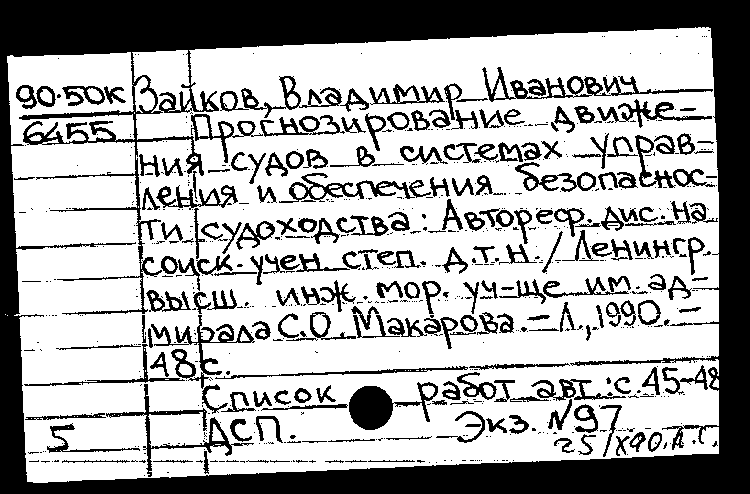 90-50К Зайков, Владимир Иванович
6455 Прогнозирование движе-
ния судов в системах управ-
ления и обеспечения безопаснос-
ти судоходства: Автореф. дис. на
соиск. учен. степ. д.т.н. / Ленингр.
высш. инж. мор. уч-ще им. ад-
мирала С.О. Макарова. - Л., 1990. -
48 с.
Список работ авт.: с. 45-48
5 ДСП. Экз. N97
25/X90. А.С.